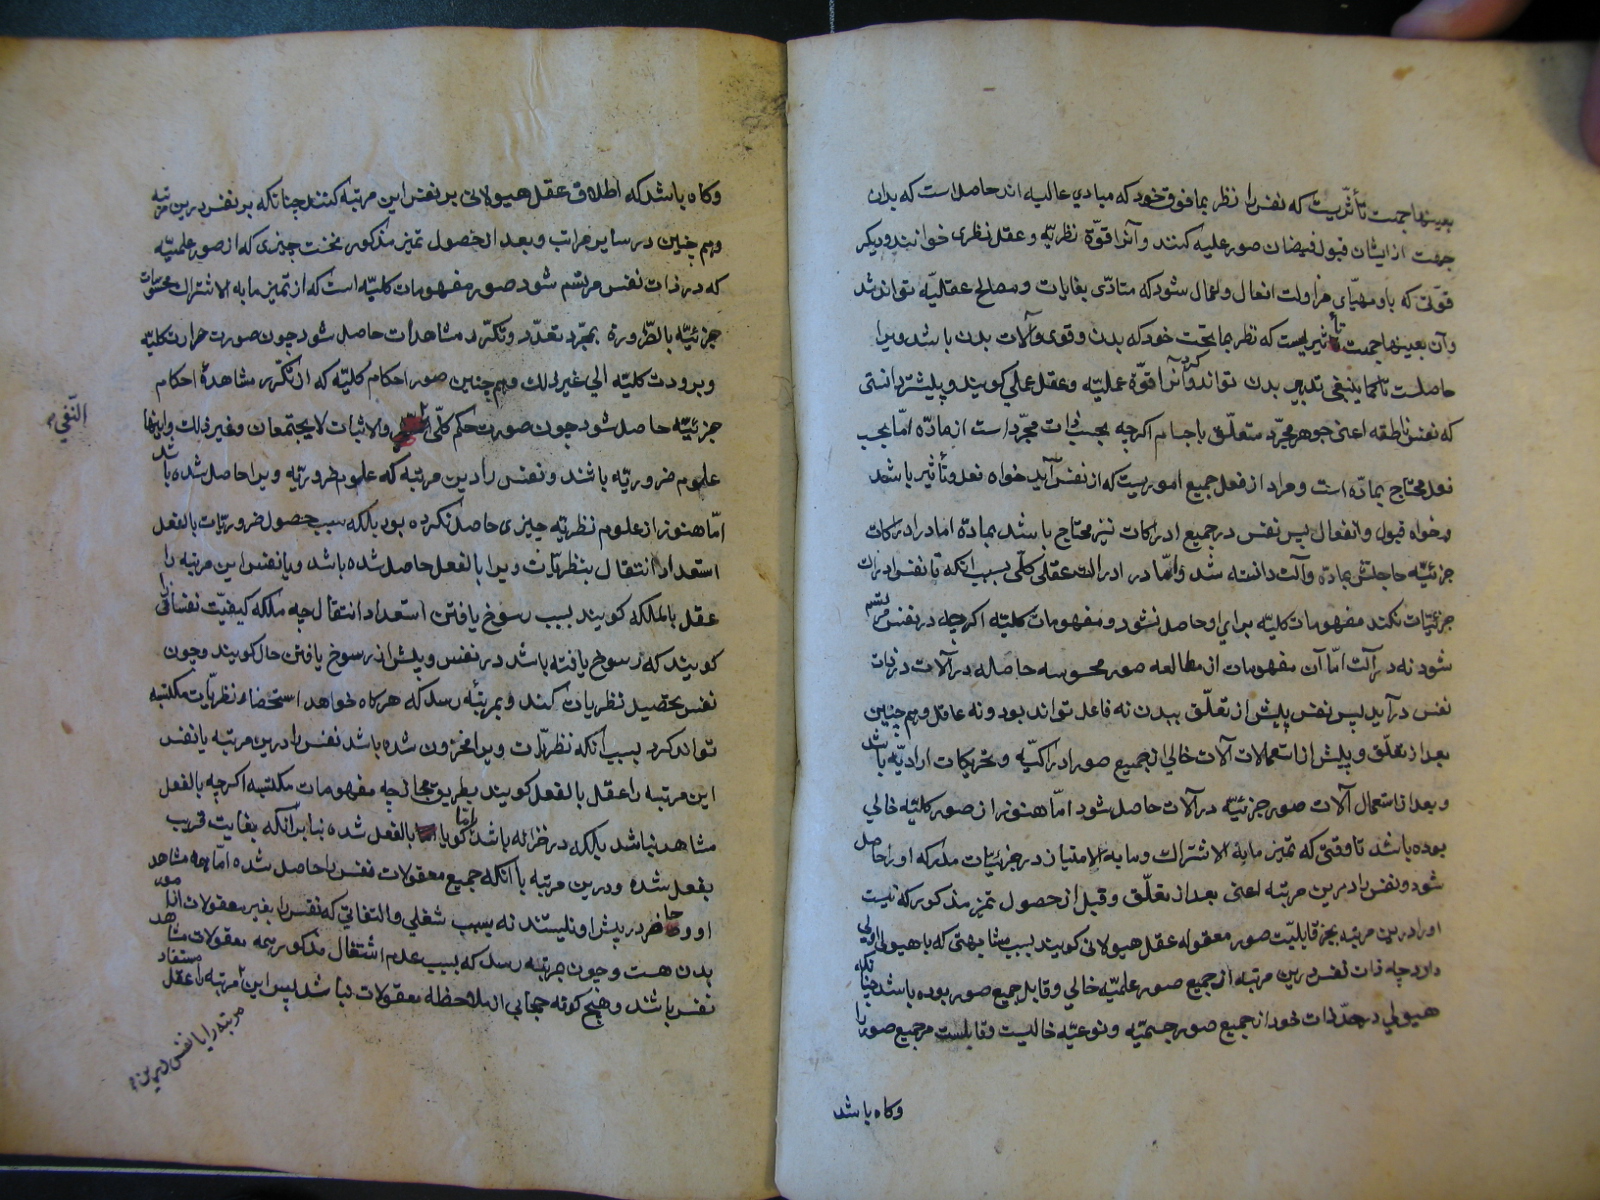 بعینها جهت تأثّریست که نفس را نظر بمافوق خود که مبادی عالیه اند حاصل است که بدان
جهت از ایشان قبول فیضان صور علیه کنند و آنرا قوّة نظریّه و عقل نظری خوانند و دیکر
قوّتی که باو مهیّای مزاولت افعال و اعمال شود که متادّی بغایات و مصالح عقلیّه تواند شد
و آن بعینها جهت تأثیریست که نظر بماتحت خود که بدن و قوی و آلات بدن باشد ویرا
حاصلست تا کما ینبغی تدبیر بدن تواند کرد و آنرا قوّة عملیّه و عقل عملی کویند و پیشتر دانستی
که نفس ناطقه اعنی جوهر مجرّد متعلّق باجسام اکرچه بحسب ذات مجرّد است از مادّه امّا بحسب
فعل محتاج بمادّه است و مراد از فعل جمیع اموریست که از نفس آید خواه فعل و تأثیر باشد
و خواه قبول و انفعال پس نفس در جمیع ادراکات نیز محتاج باشد بمادّة اما در ادراکات
جزئیّه حاجتش بمادّه و آلت دانسته شد و امّا در ادراک عقلی کلّی بسبب انکه تا نفس ادراک
جزئیّات نکند مفهومات کلیّه برای او حاصل نشود و مفهومات کلیّه اکرچه در نفس مرتسم
شود نه در آلت امّا آن مفهومات از مطالعه صور محسوسه حاصله در آلات در ذات
نفس درآید پس نفس پیش از تعلّق ببدن نه فاعل تواند بود و نه عاقل و هم چنین
بعد از تعلّق و پیش از استعمالات آلات خالی از جمیع صور ادراکیّه و تحریکات ارادیّه باشد
و بعد از استعمال آلات صور جزئیّه در آلات حاصل شود امّا هنوز از صور کلیّه خالی
بوده باشد تا وقتی که تمیز مابه الاشتراک و مابه الامتیاز در جزئیّات مدرکه او را حاصل
شود و نفس را درین مرتبه اعنی بعد از تعلّق و قبل از حصول تمیز مذکور که نیست
او را درین مرتبه بجز قابلیّت صور معقوله عقل هیولانی کویند بسبب مشابهتی که با هیولی اولی
دارد چه ذات نفس درین مرتبه از جمیع صور علمیّه خالی و قابل جمیع صور بوده باشد چنانکه
هیولی در حدّ ذات خود از جمیع صور جسمیّه و نوعیّه خالیست و قابلست مر جمیع صور را
وکاه باشد
وکاه باشد که اطلاق عقل هیولانی بر نفس این مرتبه کنند چنانکه بر نفس درین مرتبه
و هم چنین در سایر مراتب و بعد از حصول تمیز مذکور نخست چیزی که از صور علمیّه
که در ذات نفس مرتسم شود صور مفهومات کلیّه است که از تمیز مابه الاشتراک محسوسات
جزئیّه بالضّرورة بمجرّد تعدّد و تکرّر مشاهدات حاصل شود چون صورت حرارت کلیّه
و برودت کلیّه الی غیر ذلک و هم چنین صور احکام کلیّه که از تکرّر مشاهدهٔ احکام
جزئیّه حاصل شود چون صورت حکم کلّی والاثبات لا یجتمعان و غیر ذلک و اینها
النّفی
علوم ضروریّه باشند و نفس را درین مرتبه که علوم ضروریّه ویرا حاصل شده باشد
امّا هنوز از علوم نظریّه چیزی حاصل نکرده بود بلکه بسبب حصول ضروریّات بالفعل
استعداد انتقال بنظریّات ویرا بالفعل حاصل شده باشد و یا نفس این مرتبه را
عقل بالملکه کویند بسبب رسوخ یافتن استعداد انتقال چه ملکه کیفیّت نفسانی را
کویند که رسوخ یافته باشد در نفس و پیش از رسوخ یافتن حال کویند و چون
نفس تحصیل نظریات کند و بمرتبهٔ رسد که هرکاه خواهد استحضار نظریّات مکتسبه
تواند کرد بسبب انکه نظریّات ویرا مخزون شده باشد نفس را درین مرتبه یا نفس
این مرتبه را عقل بالفعل کویند بطریق مجاز چه مفهومات مکتسبه اکرچه بالفعل
مشاهد نباشد بلکه در خزانه باشد کویا بالفعل شده بنابرانکه بغایت قریب
بفعل شده و درین مرتبه با آنکه جمیع معقولات نفس را حاصل شده امّا همه مشاهد
او و حاضر در پیش او نیستند نه بسبب شغلی و التفاتی که نفس را بغیر معقولات از امور
بدن هست و چون بمرتبه رسد که بسبب عدم اشتغال مذکور همه معقولات مشاهد
نفس باشند و هیچ کونه حجابی از ملاحظه معقولات نباشد پس این مرتبه را عقل مستفاد
مرتبه را یا نفس درین